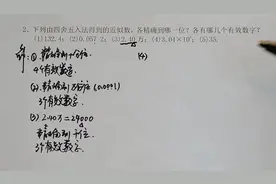 2. 下列由四舍五入法得到的近似数，各精确到哪一位？各有哪几个有效数字？
(1)132.4；(2)0.0572；(3)2.40万；(4)3.04×10⁴；(5)35.
解 ① 精确到十分位
4个有效数字
(4)
(2) 精确到万分位 (0.0001)
3个有效数字
(3) 2.40万=24000
精确到 位
3个有效数字